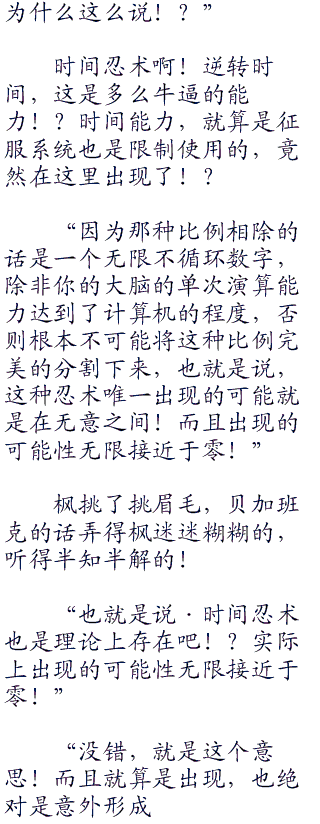 为什么这么说！？”
时间忍术啊！逆转时
间，这是多么牛逼的能
力！？时间能力，就算是征
服系统也是限制使用的，竟
然在这里出现了！？
“因为那种比例相除的
话是一个无限不循环数字，
除非你的大脑的单次演算能
力达到了计算机的程度，否
则根本不可能将这种比例完
美的分割下来，也就是说，
这种忍术唯一出现的可能就
是在无意之间！而且出现的
可能性无限接近于零！”
枫挑了挑眉毛，贝加班
克的话弄得枫迷迷糊糊的，
听得半知半解的！
“也就是说·时间忍术
也是理论上存在吧！？实际
上出现的可能性无限接近于
零！”
“没错，就是这个意
思！而且就算是出现，也绝
对是意外形成